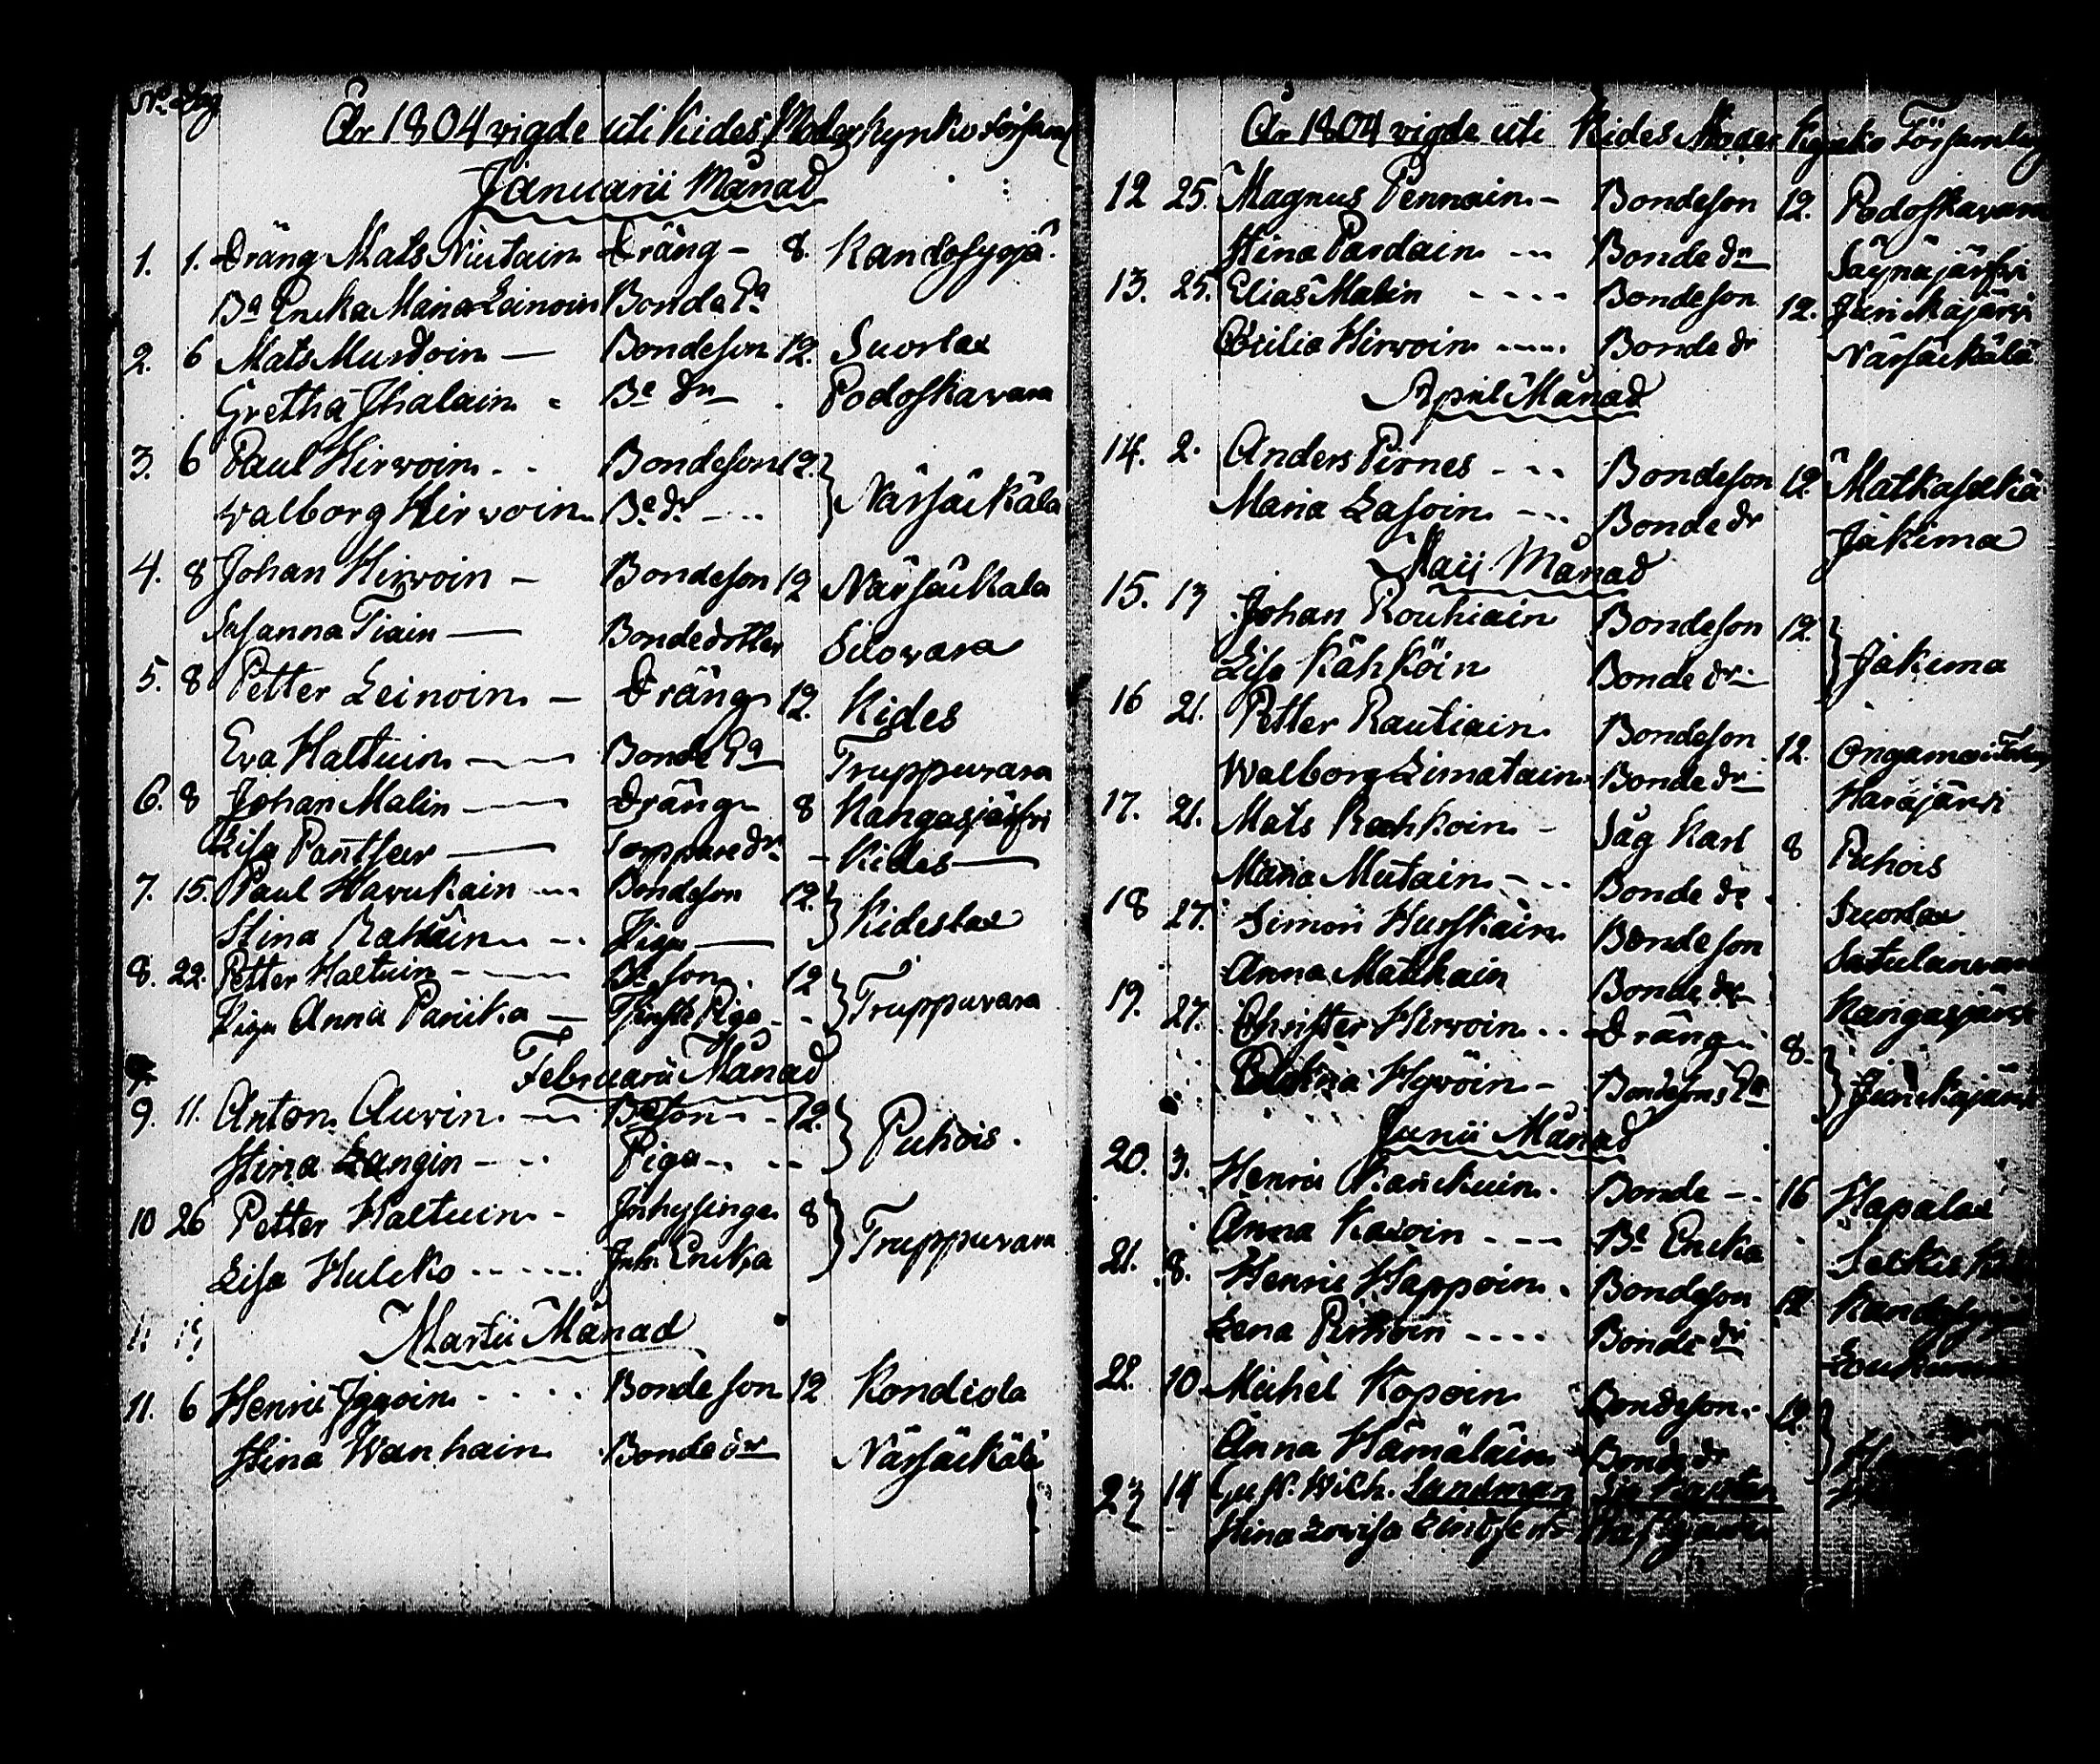 No Dag
År 1804 vigde uti Kides Moder Kyrko Församl
Januarii Månad
1. 1. Dräng Mats Niutain Dräng - 8. Kandosyrjä
Ba Encka Maria Leinoin Bonde Ea
2. 6 Mats Mustoin Bondeson 12. Suorlax
Gretha Ihalain Be dr Podoskavara
3. 6 Paul Hirvoin Bondeson 12. Närsäkälä
Walborg Hirvoin Be dr
4. 8 Johan Hirvoin - Bondeson 12 Närsäkälä
Susanna Tiain Bondedotter Siilovara
5. 8 Petter Leinoin - Dräng 12. Kides
Eva Haltuin Bonde Ea Truppuvara
6. 8 Johan Malin Dräng 8 Kangasjärfvi
Lisa Pantser Torppare dr - Kides
7. 15. Paul Havukain Bondeson 12. Kideslax
Stina Piga
8. 22. Petter Haltuin Be son 12 Truppuvara
Piga Anna Paricka Piga
Februarii Månad
9. 11. Anton Auvin Be son 12. Puhois.
Stina Langin Piga
10 26 Petter Haltuin - Inhysinge 8 Truppuvara
Lisa Hulcko Inh. Encka
Martii Månad
11. 6 Henric Iggoin Bondeson 12 Kondiola
Stina Wanhain Bonde dr Närsäkälä
År 1804 vigde uti Kides Moder Kyrko Församling
12 25. Magnus Pennain - Bondeson 12. Podoskavara
Stina Pardain Bonde dr Säynäjärfvi
13. 25. Elias Malin Bondeson 12. Jurickajärvi
Cecilia Hirvoin Bonde dr Närsäkälä
April Månad
14. 2. Anders Pirnes Bondeson 12. Matkaselkä
Maria Lasoin Bonde dr Jakima
Maij Månad
15. 13 Johan Rouhiain Bondeson 12. Jakima
Lisa Kähköin Bonde dr
16 21. Petter Rautiain Bondeson 12. Ongamo
Walborg Limatain Bonde dr Havajärvi
17. 21. Mats Kochkoin - Såg Karl 8 Puhois
Maria Mutain Bonde dr Suorlax
18 27. Simon Husskain Bondeson Satulanvara
Anna Matikain Bonde dr Kangasjärvi
19. 27. Christer Hirvoin Dräng 8. Juurickajärvi
Hyvöin - Bondesons Ea
Junii Månad
20. 3. Henric Kanckuin Bonde 16 Hapalax
Anna Kaivoin Be Encka
21. 8. Henric Happoin Bondeson 12
Lena Pirhoin Bonde dr
22. 10 Michel Kopoin Bondeson 12.
Anna Hämäläin Bonde dr
23 14 Gust. Wilh. Sundman
Stina Lovisa